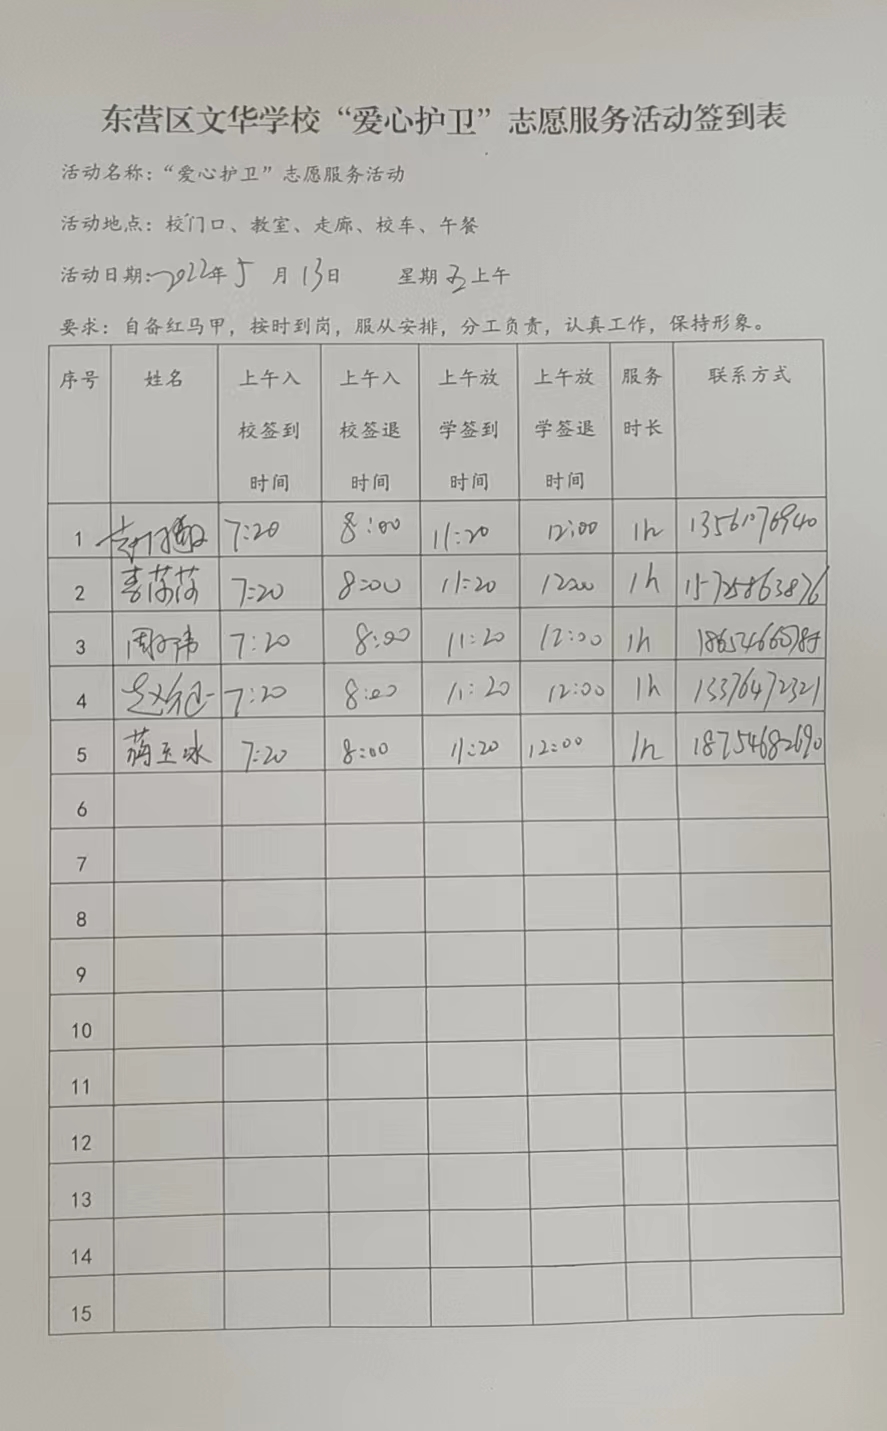 东营区文华学校“爱心护卫”志愿服务活动签到表
活动名称：“爱心护卫”志愿服务活动
活动地点：校门口、教室、走廊、校车、午餐
活动日期：2022年5月13日 星期五上午
要求：自备红马甲，按时到岗，服从安排，分工负责，认真工作，保持形象。
序号 姓名 上午入校签到时间 上午入校签退时间 上午放学签到时间 上午放学签退时间 服务时长 联系方式
1 7:20 8:00 11:20 12:00 1h 13561076940
2 李莎莎 7:20 8:00 11:20 1200 1h 15725863876
3 7:20 8:00 11:20 12:00 1h
4 7:20 8:00 11:20 12:00 1h 13376472321
5 蒋玉冰 7:20 8:00 11:20 12:00 1h 18754682690
6
7
8
9
10
11
12
13
14
15